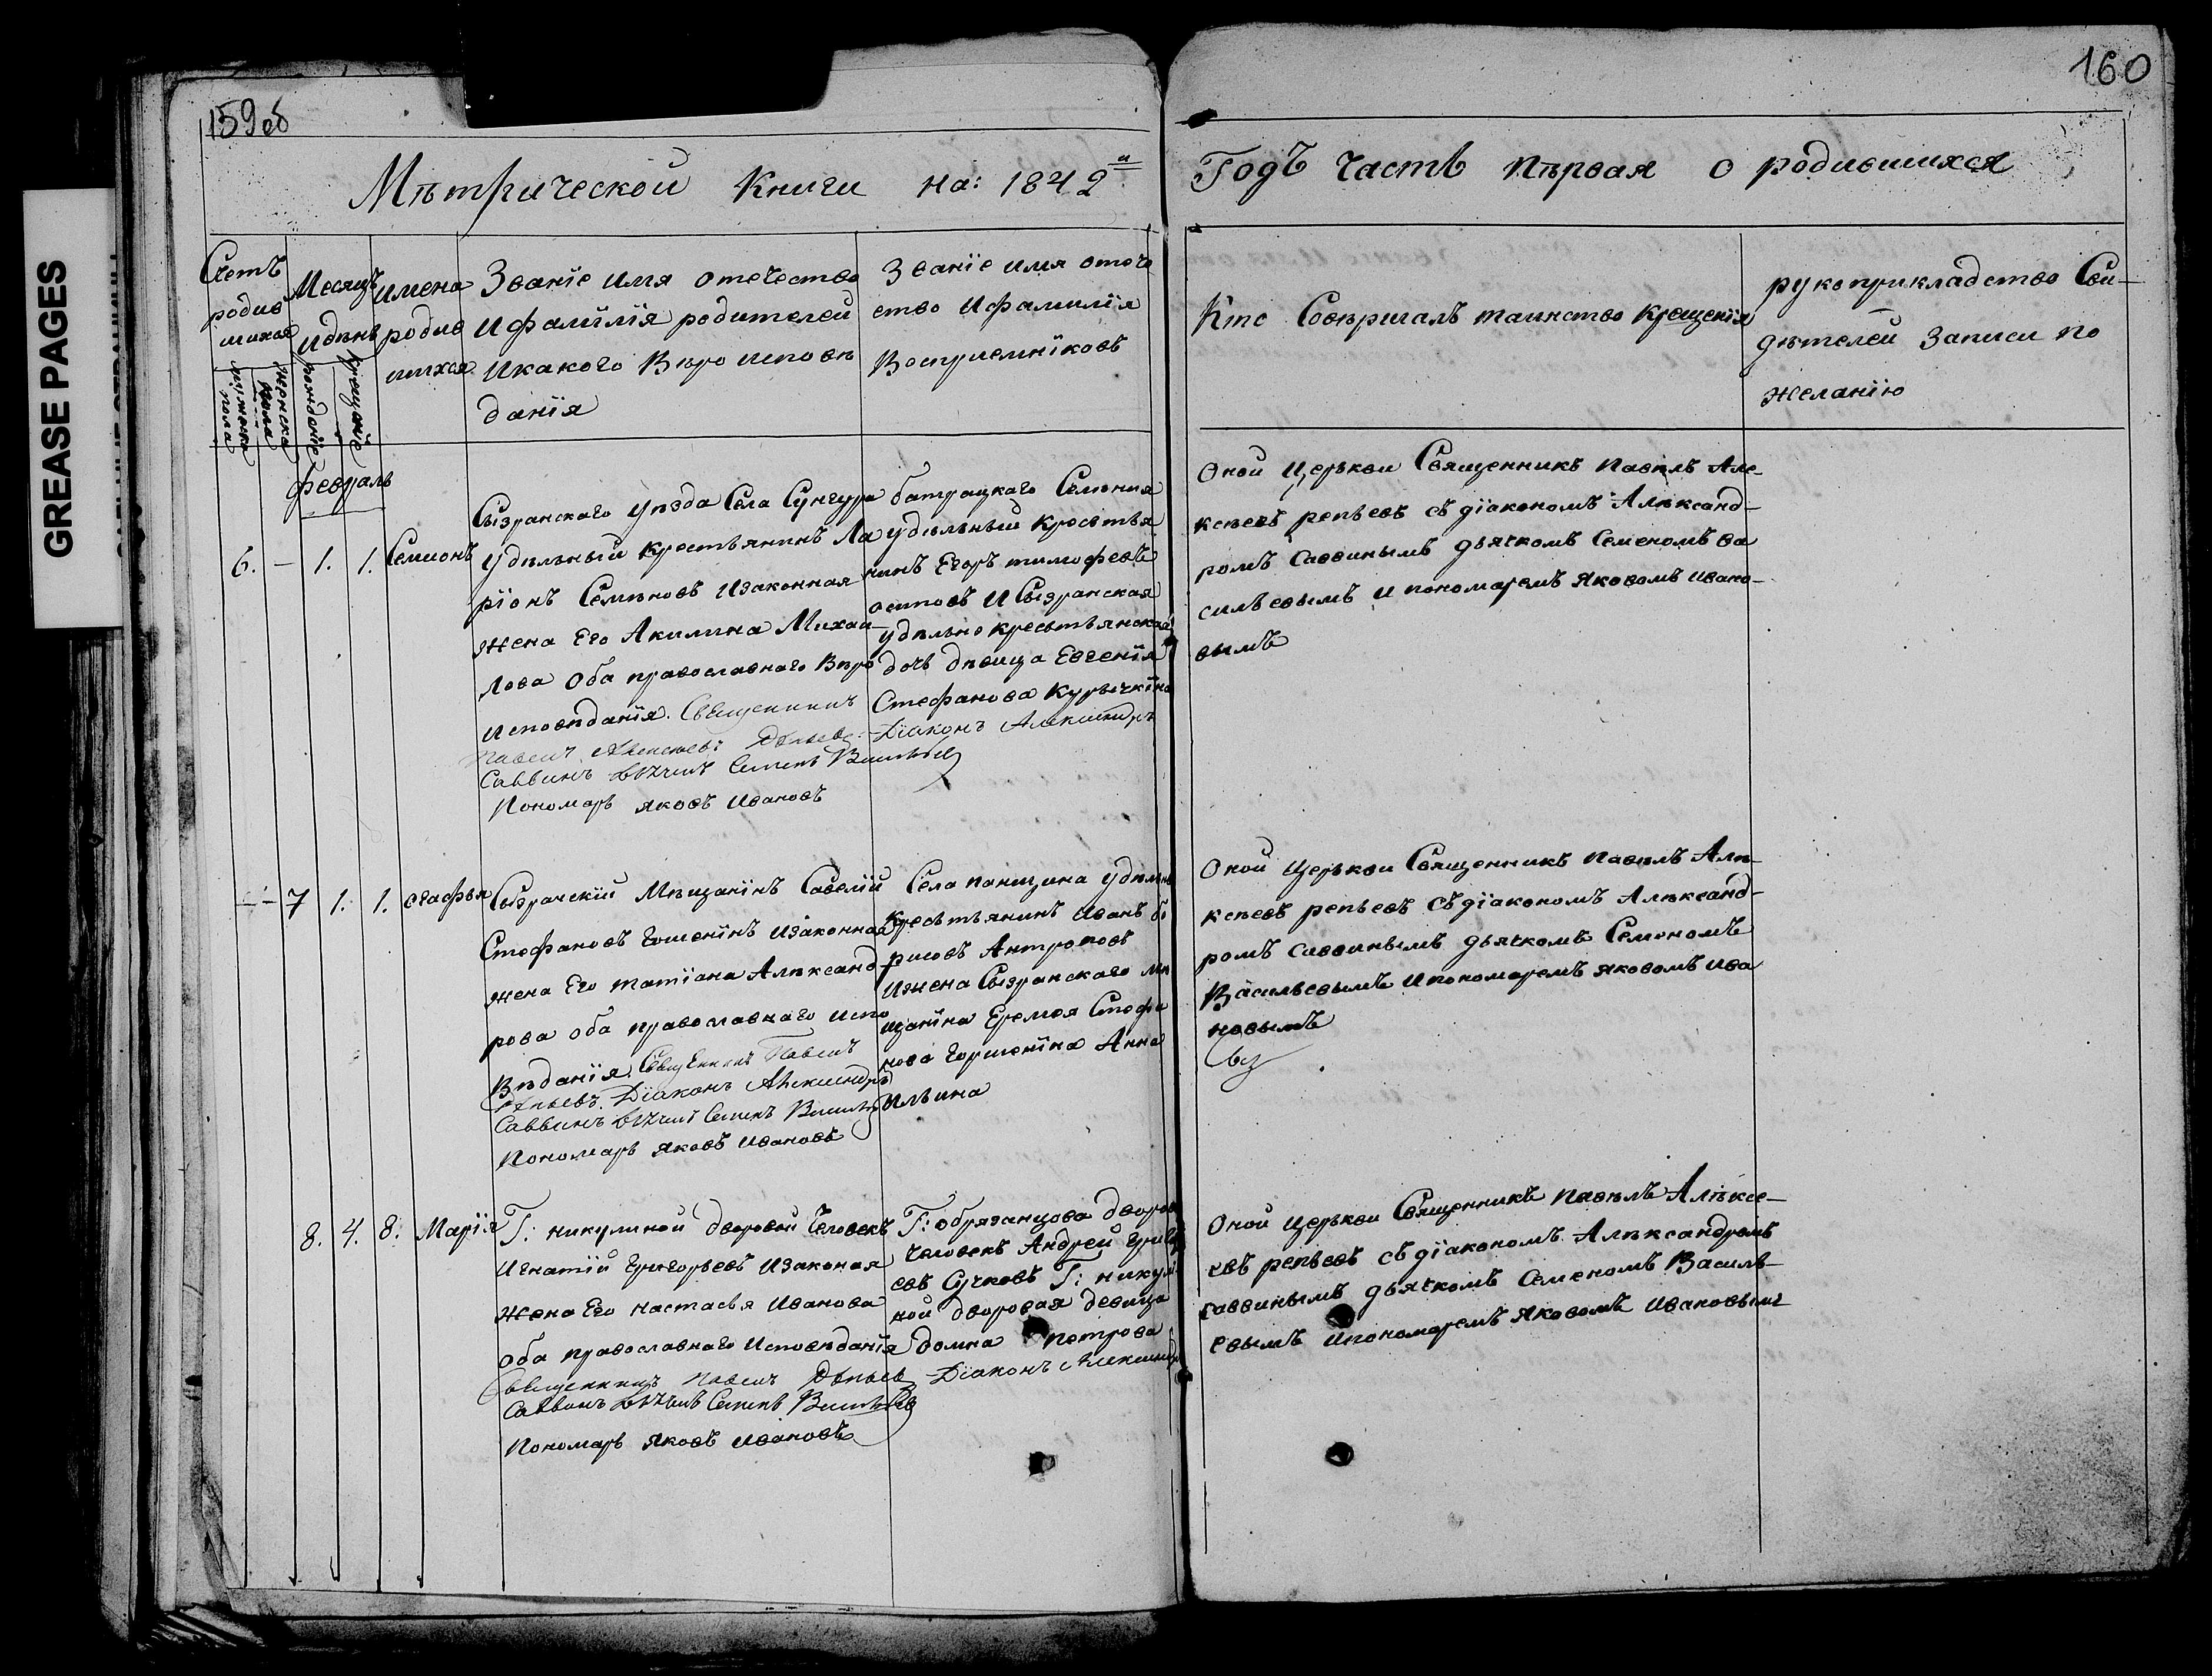 GREASE PAGES
159об
160
Мѣтрической Книги на: 1842й
Годъ Часть пѣрвая о родившихся
Счетъ
родив
шихся
мужеска
пола
женска
пола
Месяцъ
и день
рождение
крещение
имена
родив
шихся
Званїе имя отечество
и фамилїя родителей
и какого Веро исповѣ
данїя
Званїе имя отече
ство и фамилїя
Восприемнїковъ
Кто Совѣршалъ таинство крещенїя
рукоприкладство Сви-
дѣтелей записи по
желанїю
февраль
6. - 1. 1. Семионъ
Сызранскаго уѣзда Села Сунгура
удѣльный крестьянинъ Ла
рїонъ Семѣновъ и законная
жена Его Акилина Михаи-
лова оба православнаго Вѣро
исповѣданїя. Священникъ
Павелъ Алексѣевъ Репьевъ. Дїаконъ Александръ
Саввинъ Дьячекъ Семенъ Васильев
Пономарь Яковъ Ивановъ
батрацкаго Селѣния
удѣльный кресьтья
нинъ Егоръ тимофеевъ
осиповъ и Сызранская
удѣльно кресьтьянская
дочь дѣвица Евгенїя
Стефанова Курычкїна
Оной Церькви Священникъ Павѣлъ Але-
ксѣевъ репьевъ съ дїакономъ Алѣксанд-
ромъ Саввинымъ дьячкомъ Семеномъ ва
сильевымъ и пономаремъ Яковомъ Ивано-
вымъ
-- 7 1. 1. Агафья
Сызранскїй Мѣщанїнъ Савелїй
Стефановъ Гошенїнъ и законная
жена Его татїана Алѣксанд-
рова оба православнаго испо
Вѣданїя. Священникъ Павелъ
Репьевъ. Дїаконъ Александръ
Саввинъ Дьячекъ Семенъ Васильев
Пономарь Яковъ Ивановъ
Села паньщина удѣльн
Кресьтьянинъ Иванъ бо
рисовъ Антроповъ
и жена Сызранскаго мѣ
щанїна Еремея Стефа
нова Горшенїна Анна
Ильина
Оной Церькви Священникъ Павѣлъ Алѣ-
ксѣевъ репьевъ съ дїакономъ Алѣксанд-
ромъ Саввинымъ дьячкомъ Семеномъ
Васильевымъ и пономаремъ Яковомъ Ива
новымъ
8. 4. 8. Марїя
Г: никулиной дворовой Человекъ
Игнатїй Григорьевъ и законая
жена Его настасья Иванова
оба православнаго Исповѣданїя
Священникъ Павелъ Репьев Дїаконъ Александр
Саввинъ Дьячекъ Семенъ Васильев
Пономарь Яковъ Ивановъ
Г: обрязанцова дворов
человекъ Андрей Григорь
евъ Сучковъ Г: никули
ной дворовая девица
домна петрова
Оной Церькви Священникъ Павѣлъ Алѣксе-
евъ репьевъ съ дїакономъ Алѣксандромъ
Саввинымъ дьячкомъ Семеномъ Василь-
евымъ и пономаремъ Яковомъ Ивановымъ